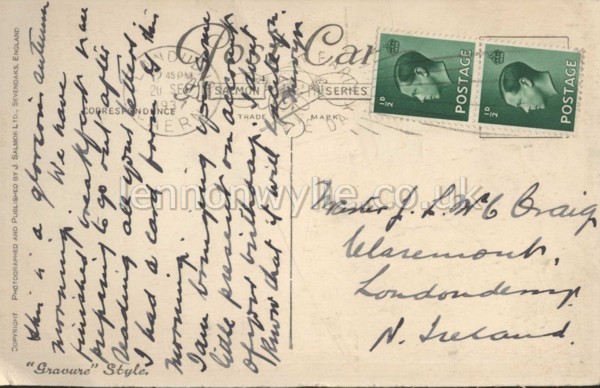 Post Card
CORRESPONDENCE
THE "SALMON SERIES
TRADE MARK
45 PM
1937
POSTAGE
½D
POSTAGE
½D
This is a glorious autumn
morning. We have
finished breakfast & are
preparing to go out after
reading all your letters.
I had a card from this
morning.
I am bringing you some
little present on account
of your birthday. I don't
know that it will
Master J. L. McC Craig
Claremont,
Londonderry
N. Ireland.
"Gravure" Style.
COPYRIGHT PHOTOGRAPHED AND PUBLISHED BY J. SALMON LTD., SEVENOAKS, ENGLAND
lennonwylie.co.uk